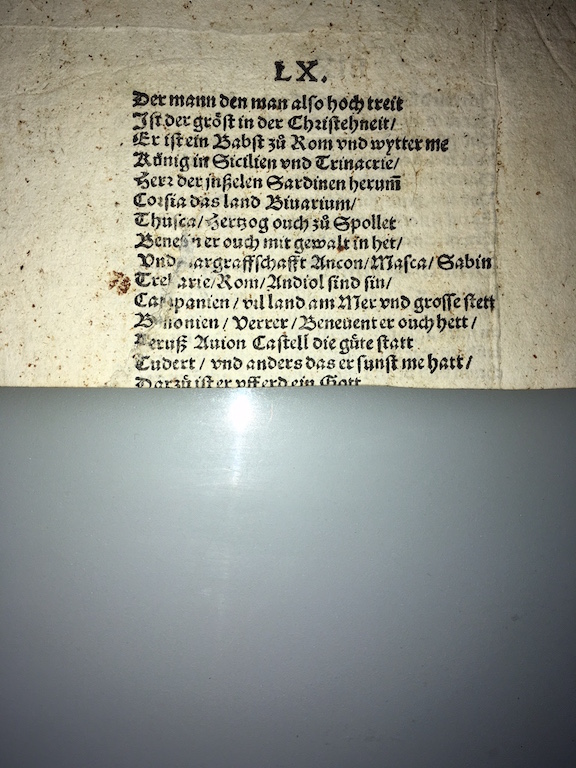 LX.
Der mann den man also hoch treit
Ist der gröst in der Christehneit/
Er ist ein Babst zů Rom vnd wytter me
Künig in Sicilien vnd Trinacrie/
Herr der inßelen Sardinen herum̄
Corsia das land Biuarium/
Thusca/ Hertzog ouch zů Spollet
er ouch mit gewalt in het/
Vnd Ancon/Masca/ Sabin
Rom/Andiol sind sin/
vil land am Mer vnd grosse stett
Verrer/ Beneuent er ouch hett/
Auion Castell die gůte statt
Tudert/ vnd anders das er sunst me hatt/
Darzů ist er vff erd ein Gott